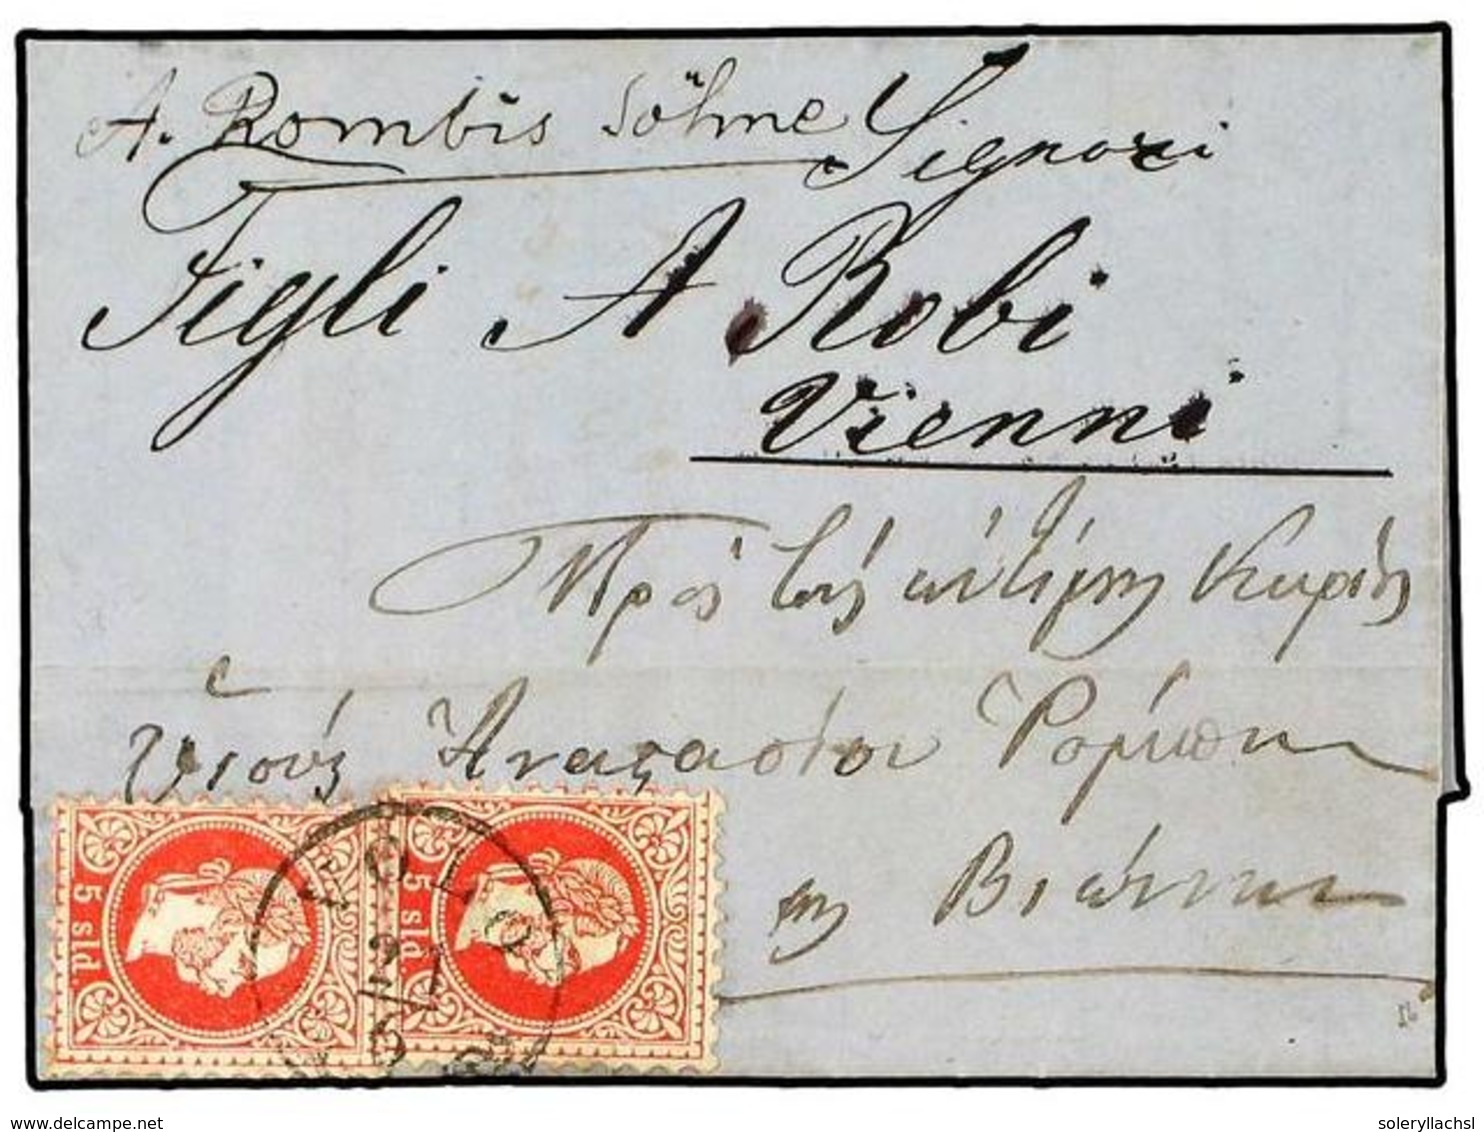 A. Rombis Söhne Signori
Figli A Robi
Vienni
Πρὸς τοὺς ἀντίμους Κυρίους
Υἱοὺς Ἀναστασίου Ῥόμπη
εἰς Βιέννην
5 sld. 5 sld.
VOLO
21
5
delcampe.net
soleryllachsl